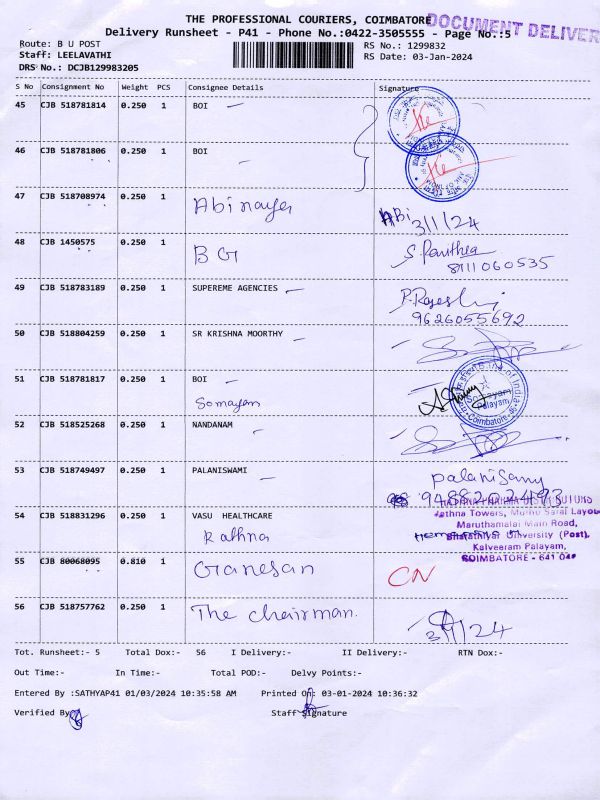 THE PROFESSIONAL COURIERS, COIMBATORE
DOCUMENT DELIVER
Delivery Runsheet - P41 - Phone No.:0422-3505555 - Page No.:5
Route: B U POST
RS No.: 1299832
Staff: LEELAVATHI
RS Date: 03-Jan-2024
DRS No.: DCJB129983205
S No Consignment No Weight PCS Consignee Details Signature
45 CJB 518781814 0.250 1 BOI
46 CJB 518781806 0.250 1 BOI
47 CJB 518708974 0.250 1 Abinaya
ABi 3/1/24
48 CJB 1450575 0.250 1 BG
8111060535
49 CJB 518783189 0.250 1 SUPEREME AGENCIES
9626055692
50 CJB 518804259 0.250 1 SR KRISHNA MOORTHY
51 CJB 518781817 0.250 1 BOI
Somayam
Bank of India
Somayam
Palayam
Coimbatore
52 CJB 518525268 0.250 1 NANDANAM
53 CJB 518749497 0.250 1 PALANISWAMI
Palanisamy
9488202493
54 CJB 518831296 0.250 1 VASU HEALTHCARE
Rathna
Rathna Towers,
Maruthamalai Main Road,
Bharathiyar University (Post),
Kalveeram Palayam,
COIMBATORE - 641 046
55 CJB 80068095 0.810 1 Ganesan
CN
56 CJB 518757762 0.250 1 The Chairman.
3/1/24
Tot. Runsheet:- 5 Total Dox:- 56 I Delivery:- II Delivery:- RTN Dox:-
Out Time:- In Time:- Total POD:- Delvy Points:-
Entered By :SATHYAP41 01/03/2024 10:35:58 AM Printed On: 03-01-2024 10:36:32
Verified By
Staff Signature